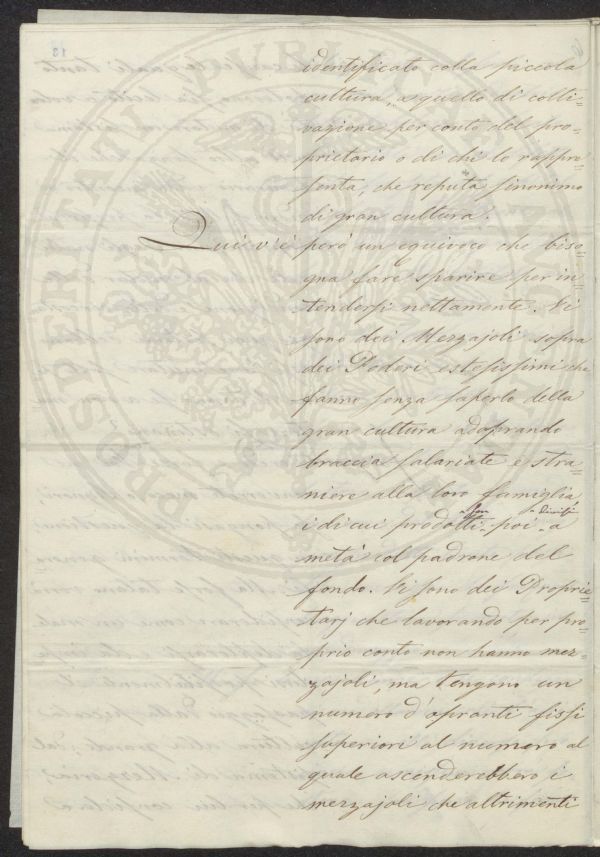 13
identificato colla piccola
cultura, a quello di colti=
vazione per conto del pro=
prietario o di chi lo rappre=
senta, che reputa sinonimo
di gran cultura.
Qui v'è però un equivoco che biso=
gna fare sparire per in=
tendersi nettamente. Vi
sono dei Mezzajoli sopra
dei Poderi estesissimi che
fanno senza saperlo della
gran cultura adoprando
braccia salariate e stra=
niere alla loro famiglia
i di cui prodotti son poi divisi a
metà col padrone del
fondo. Vi sono dei Proprie=
tarj che lavorando per pro=
prio conto non hanno mez=
zajoli, ma tengono un
numero d'opranti fissi
superiori al numero al
quale ascenderebbero i
mezzajoli che altrimenti
PROSPERITATI PUBLICAE